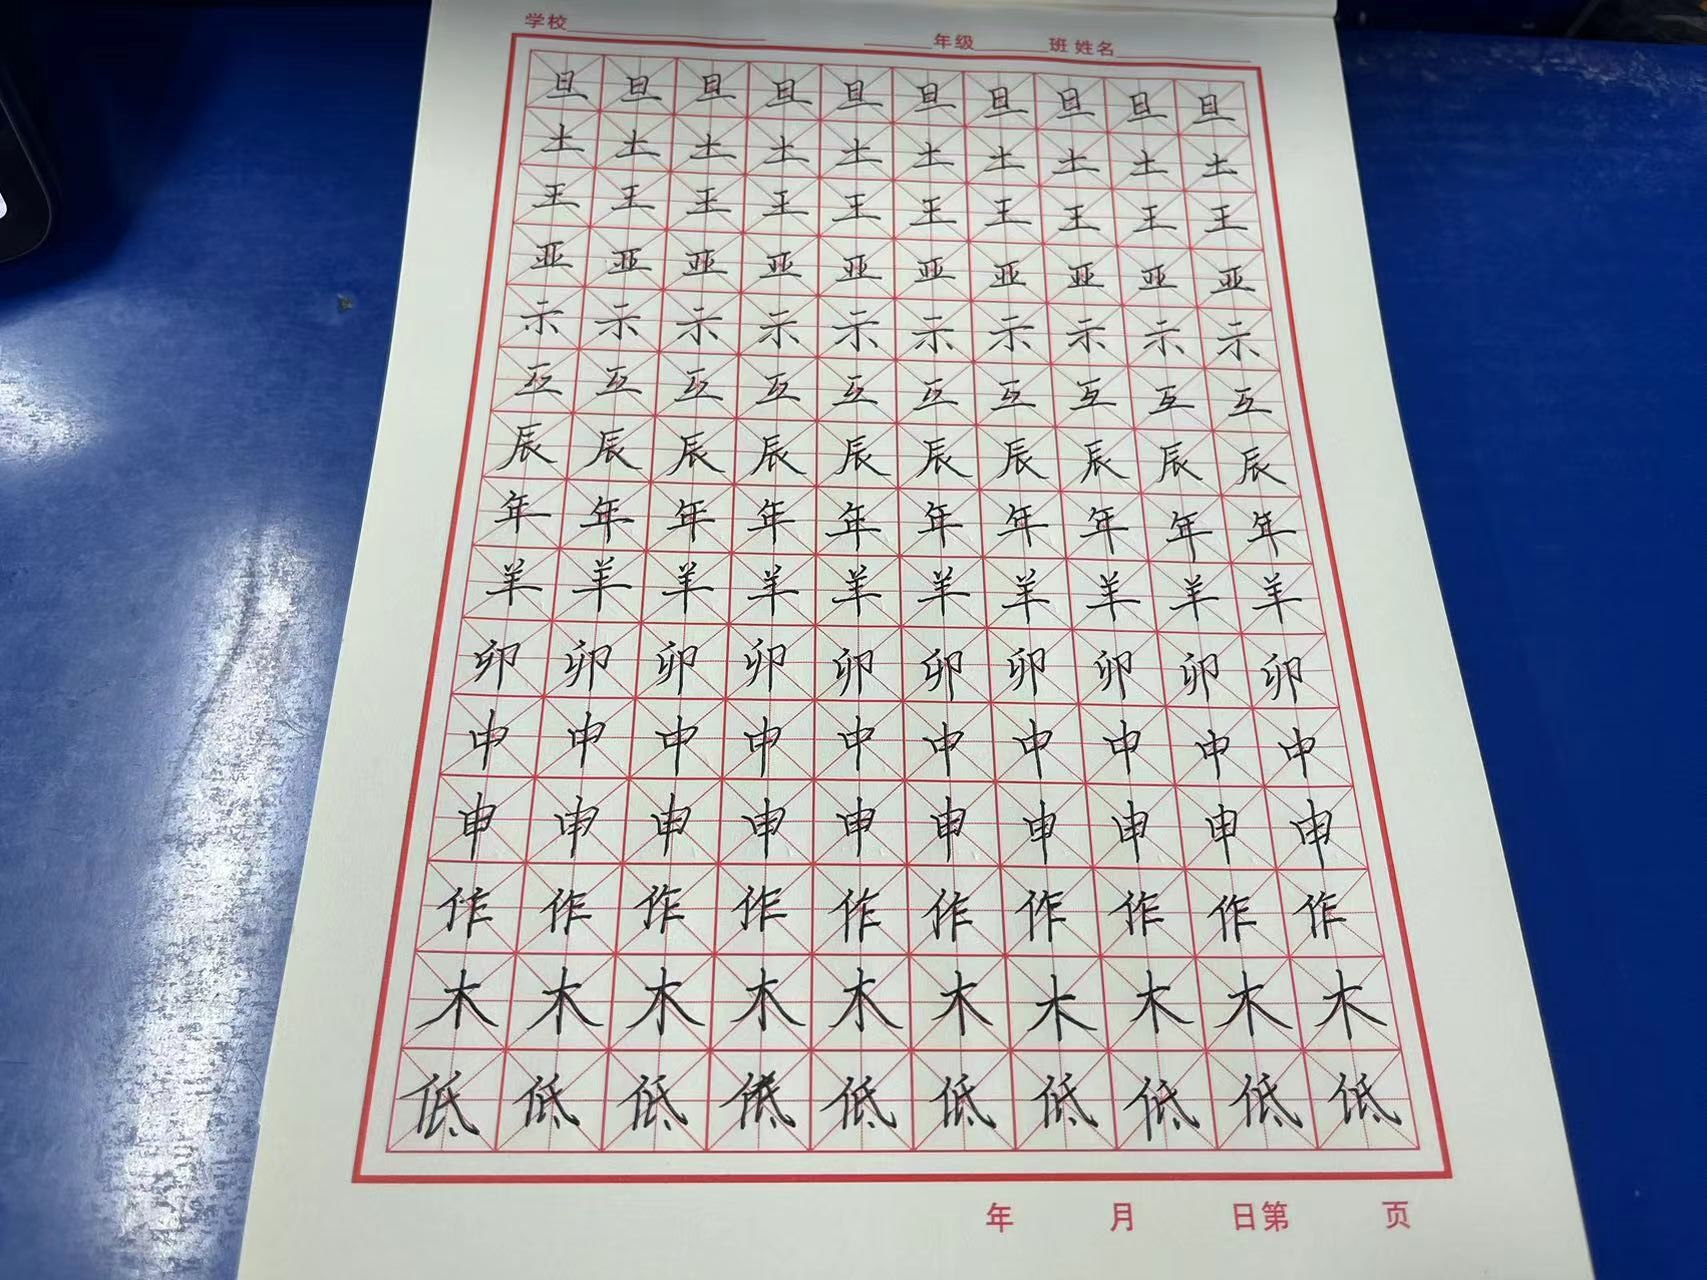 学校 年级 班 姓名
旦旦旦旦旦旦旦旦旦旦
土土土土土土土土土土
王王王王王王王王王王
亚亚亚亚亚亚亚亚亚亚
示示示示示示示示示示
互互互互互互互互互互
辰辰辰辰辰辰辰辰辰辰
年年年年年年年年年年
羊羊羊羊羊羊羊羊羊羊
卯卯卯卯卯卯卯卯卯卯
中中中中中中中中中中
申申申申申申申申申申
作作作作作作作作作作
木木木木木木木木木木
低低低低低低低低低低
年 月 日第 页